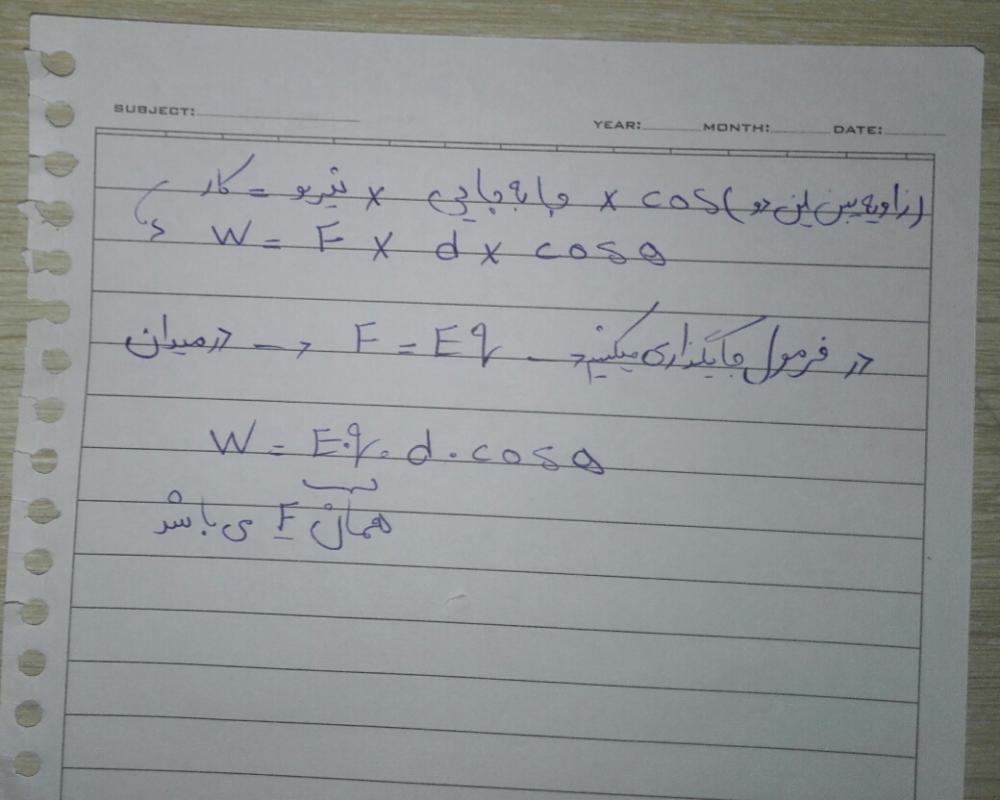 SUBJECT:
YEAR: MONTH: DATE:
کار = نیرو × جا به جایی × cos (زاویه بین این دو)
W = F × d × cos θ
در میدان → F = Eq → در فرمول جایگذاری میکنیم
W = E.q.d.cos θ
همان F می باشد